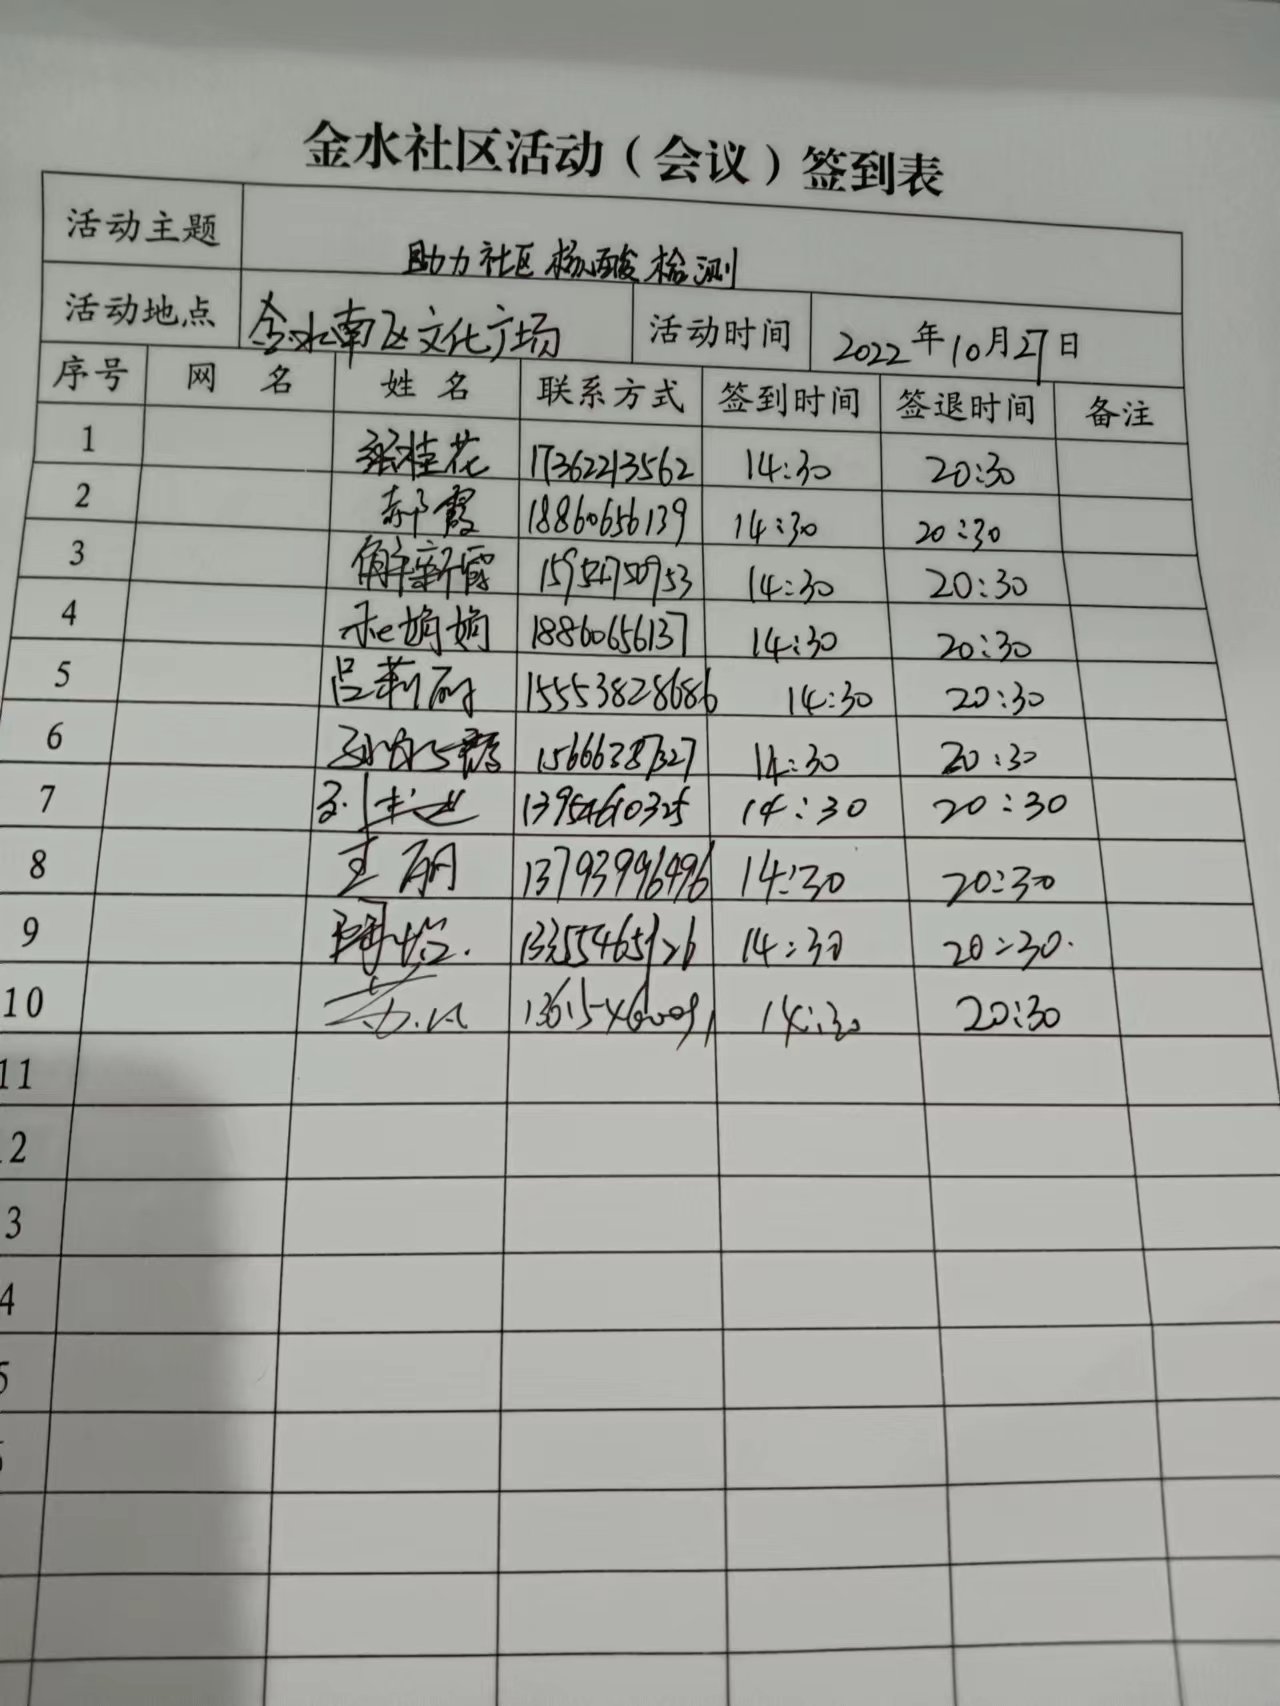 金水社区活动（会议）签到表
活动主题 助力社区核酸检测
活动地点 金水南区文化广场 活动时间 2022年10月27日
序号 网名 姓名 联系方式 签到时间 签退时间 备注
1 张桂花 17362213562 14:30 20:30
2 郝霞 18860656139 14:30 20:30
3 解新霞 15954750953 14:30 20:30
4 娟娟 18860656137 14:30 20:30
5 吕莉丽 15553828686 14:30 20:30
6 15666387327 14:30 20:30
7 13954610325 14:30 20:30
8 王丽 13793996496 14:30 20:30
9 14:30 20:30
10 14:30 20:30
11
12
13
14
15